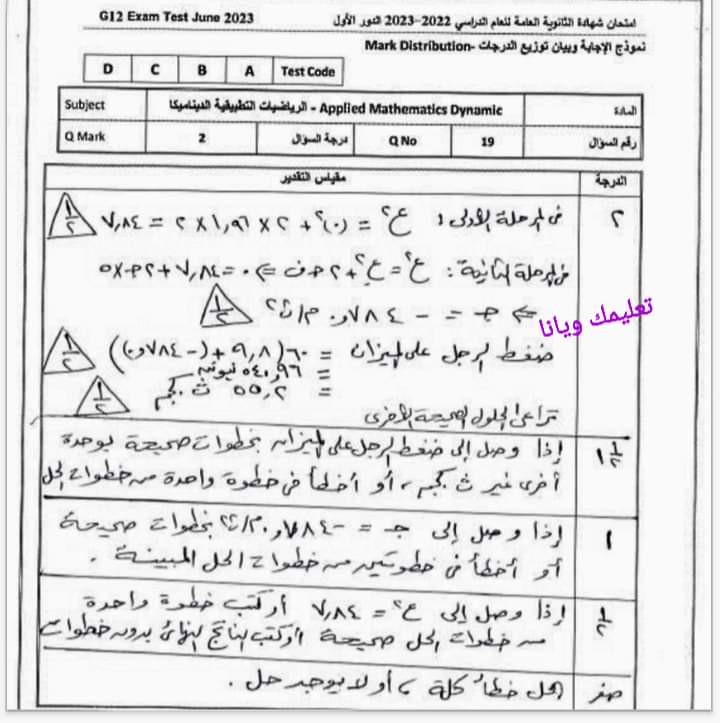 G12 Exam Test June 2023 امتحان شهادة الثانوية العامة للعام الدراسي 2022-2023 الدور الأول
نموذج الإجابة وبيان توزيع الدرجات -Mark Distribution
D C B A Test Code
Subject الرياضيات التطبيقية الديناميكا - Applied Mathematics Dynamic المادة
Q Mark 2 درجة السؤال Q No 19 رقم السؤال
الدرجة مقياس التقدير
٢ في المرحلة الأولى: ع٢ = (٠)٢ + ٢ × ١,٩٦ × ٢ = ٧,٨٤ ١/٢
في المرحلة الثانية: ع٢ = ع.٢ + ٢ جـ ف ⇐ ٠ = ٧,٨٤ + ٢ جـ × ٥
⇐ جـ = - ٠,٧٨٤ م/ث٢ ١/٢
تعليمك ويانا
ضغط الرجل على الميزان = ٦٠ (٩,٨ + (- ٠,٧٨٤)) ١/٢
= ٥٤٠,٩٦ نيوتن
= ٥٥,٢ ث كجم ١/٢
تراعى الحلول الصحيحة الأخرى
١ ١/٢ إذا وصل إلى ضغط الرجل على الميزان بخطوات صحيحة بوحدة
أخرى غير ث كجم، أو أخطأ في خطوة واحدة من خطوات الحل
١ إذا وصل إلى جـ = - ٠,٧٨٤ م/ث٢ بخطوات صحيحة
أو أخطأ في خطوتين من خطوات الحل المبينة.
١/٢ إذا وصل إلى ع٢ = ٧,٨٤ أو كتب خطوة واحدة
من خطوات الحل صحيحة أو كتب الناتج النهائي بدون خطوات
صفر الحل خطأ كلة، أو لا يوجد حل.